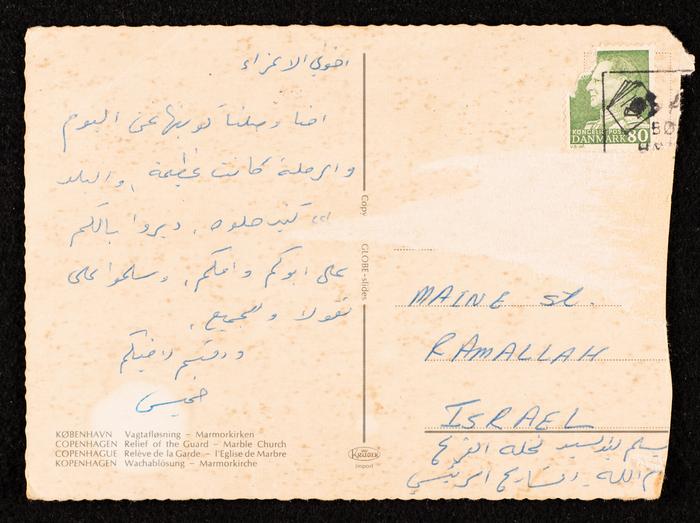 اخوتي الاعزاء
احنا وصلنا كوبنهاغن اليوم
والرحلة كانت عظيمة، والبلد
كثير حلوه، ديروا بالكم
على ابوكم وامكم، وسلموا على
نقولا والجميع،
ودمتم لاخيكم
خميس
KØBENHAVN Vagtafløsning – Marmorkirken
COPENHAGEN Relief of the Guard – Marble Church
COPENHAGUE Relève de la Garde – l'Eglise de Marbre
KOPENHAGEN Wachablösung – Marmorkirche
Copy GLOBE-slides
KRÜGER
import
DANMARK 80
MAINE St.
RAMALLAH
ISRAEL
يسلم للسيد نخله الفرح
رام الله – الشارع الرئيسي